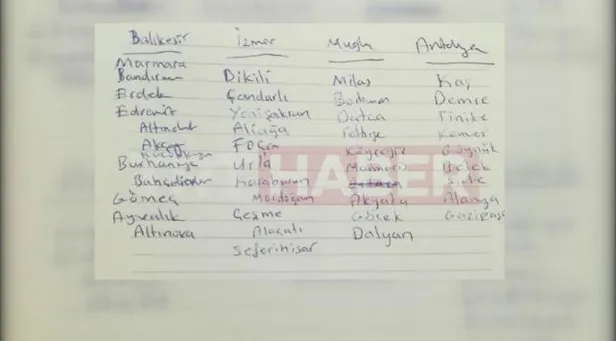 Balıkesir İzmir Muğla Antalya
Marmara
Bandırma Dikili Milas Kaş
Erdek Çandarlı Bodrum Demre
Edremit Yenişakran Datça Finike
Altınoluk Aliağa Fethiye Kemer
Akçay Foça Köyceğiz Göynük
Küçükkuyu
Burhaniye Urla Marmaris Belek
Bahçelievler Karaburun Datça Side
Gömeç Mordoğan Akyaka Alanya
Ayvalık Çeşme Göcek Gazipaşa
Altınova Alaçatı Dalyan
Seferihisar
HABER